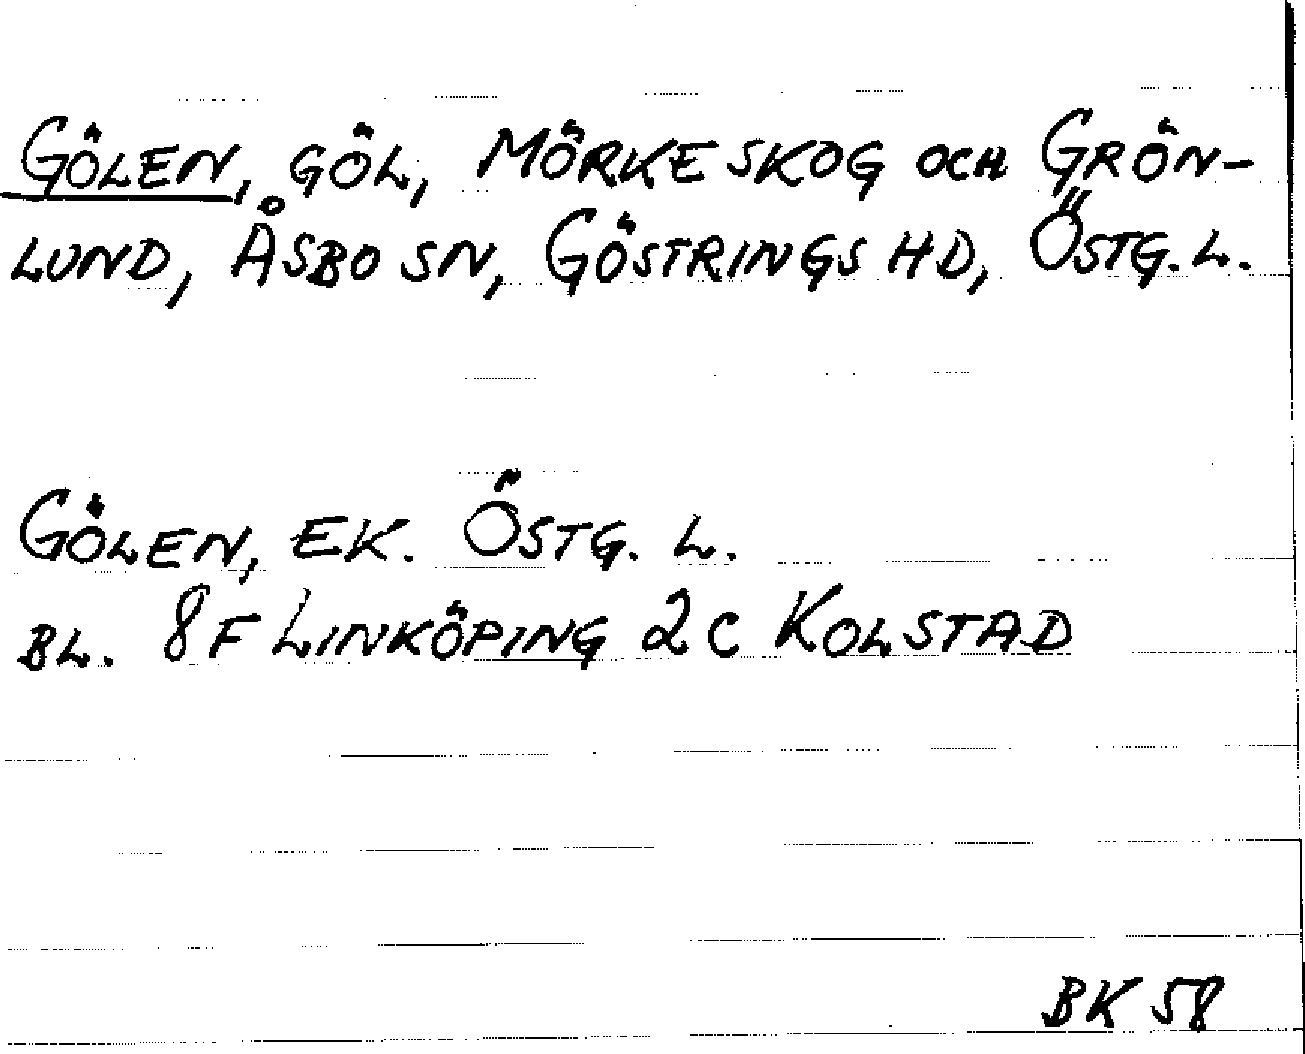 GÖLEN, GÖL, MÖRKESKOG OCH GRÖN-
LUND, ÅSBO SN, GÖSTRINGS HD, ÖSTG. L.
GÖLEN, EK. ÖSTG. L.
BL. 8F LINKÖPING 2C KOLSTAD
BK 58